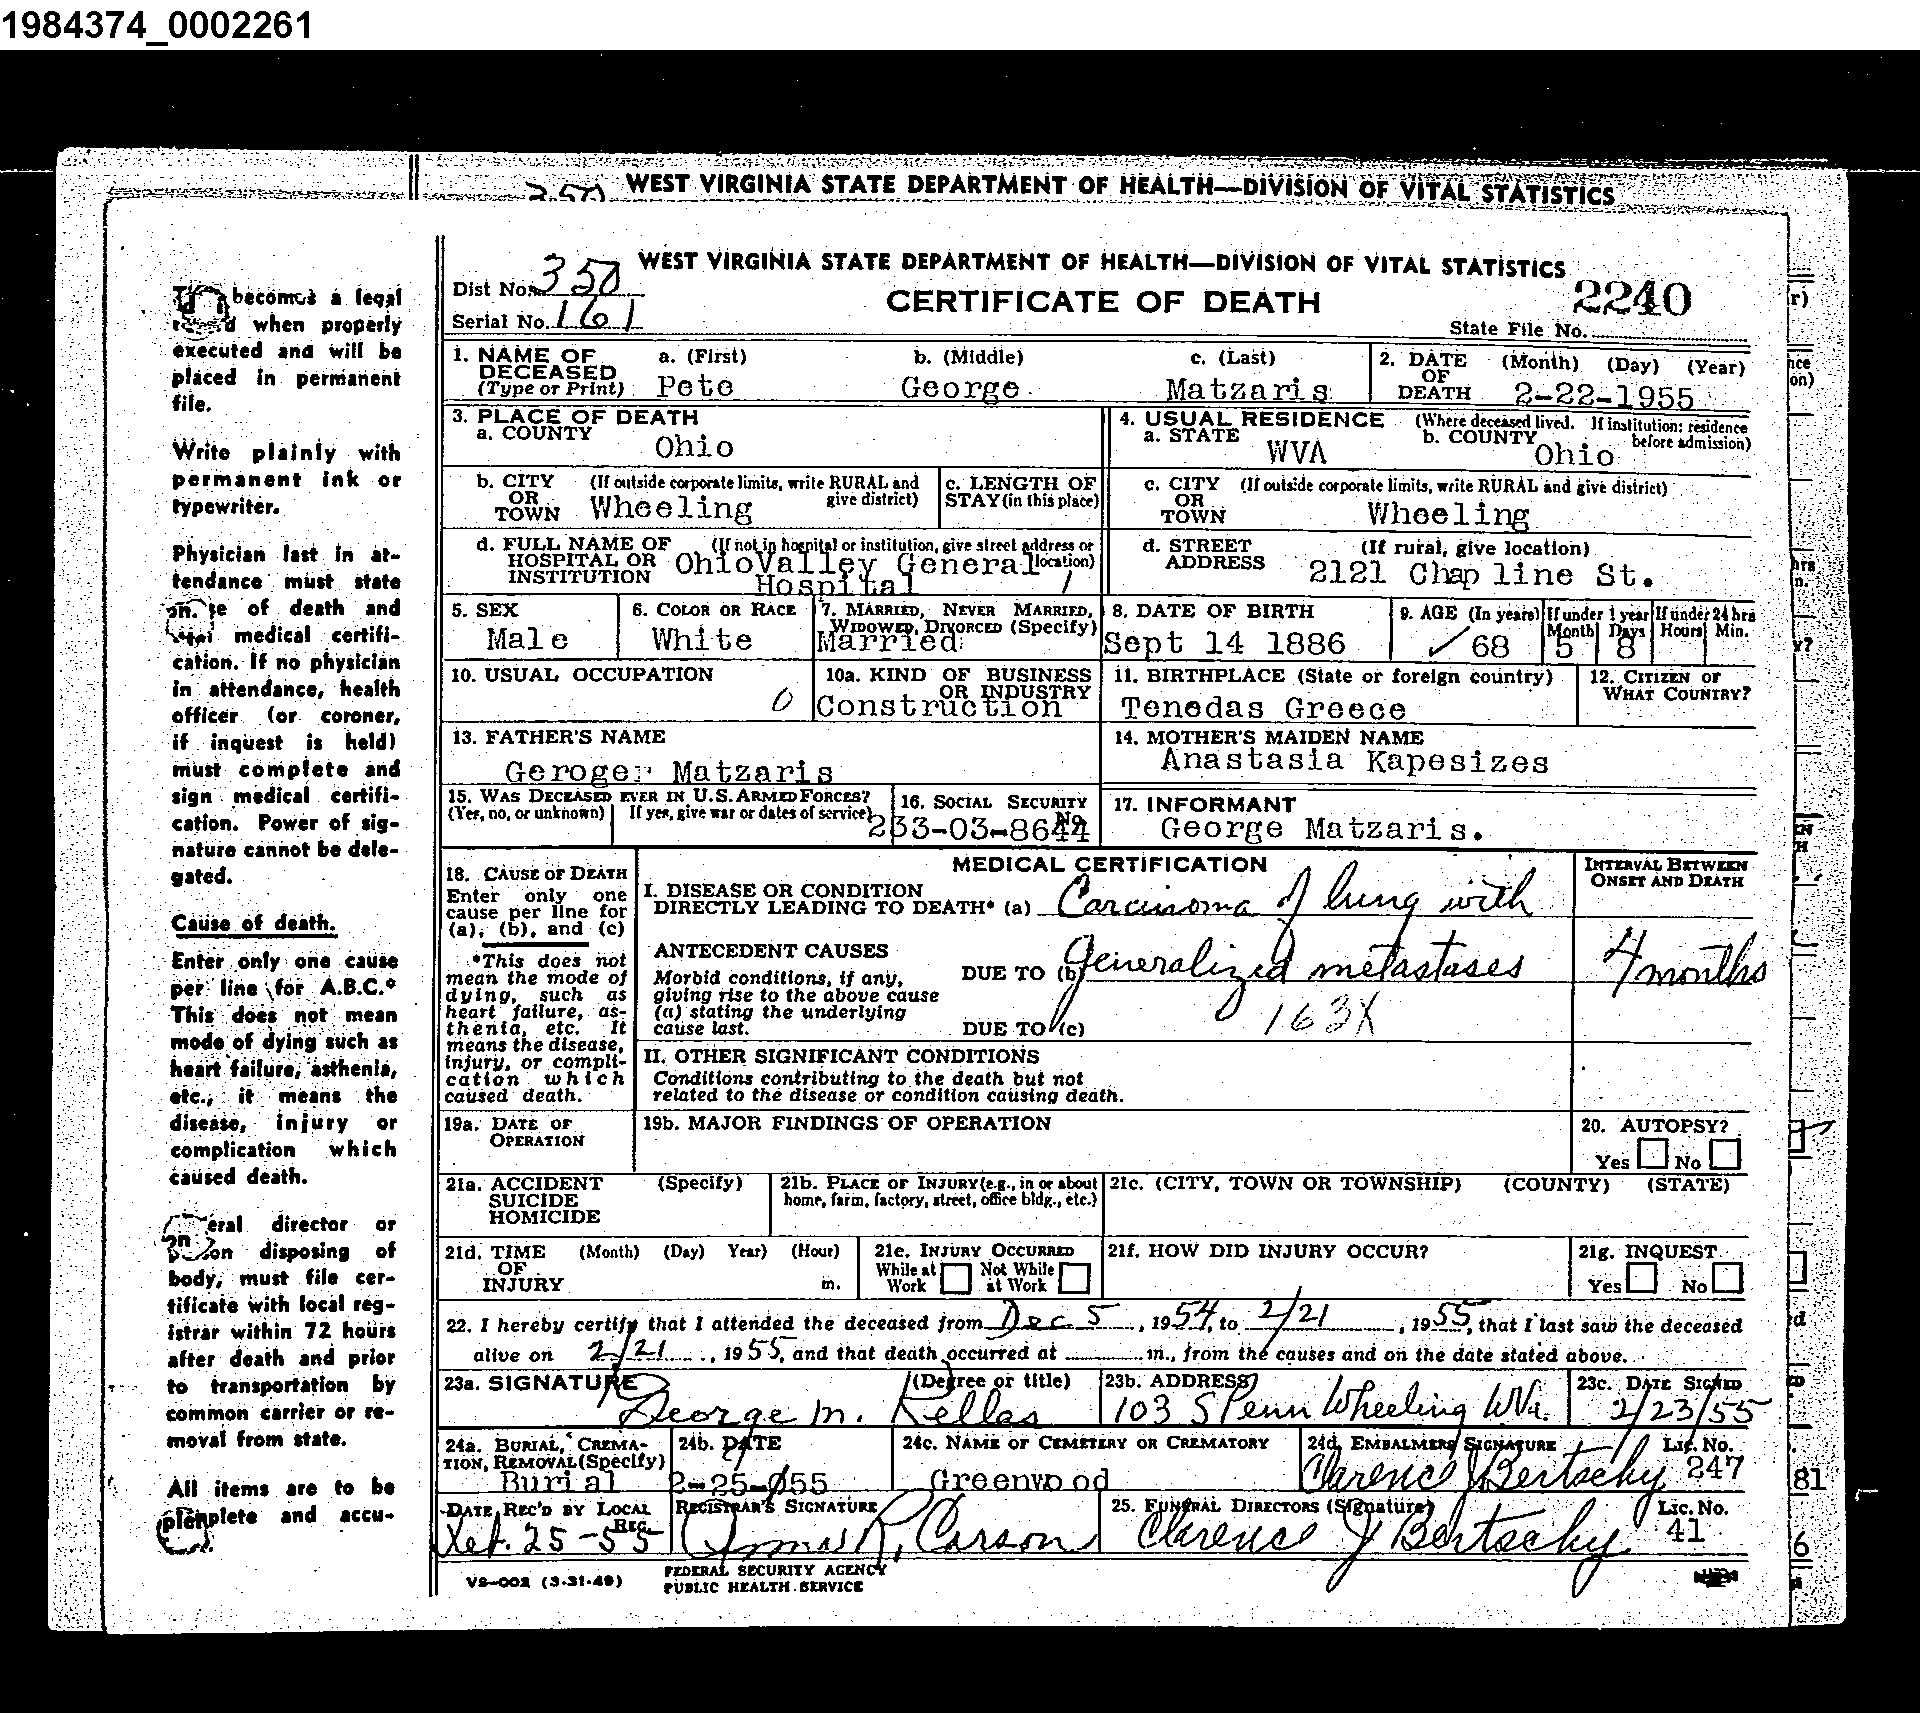 1984374_0002261
WEST VIRGINIA STATE DEPARTMENT OF HEALTH—DIVISION OF VITAL STATISTICS
becomes a legal
when properly
executed and will be
placed in permanent
file.
Write plainly with
permanent ink or
typewriter.
Physician last in at-
tendance must state
of death and
medical certifi-
cation. If no physician
in attendance, health
officer (or coroner,
if inquest is held)
must complete and
sign medical certifi-
cation. Power of sig-
nature cannot be dele-
gated.
Cause of death.
Enter only one cause
per line for A.B.C.*
This does not mean
mode of dying such as
heart failure, asthenia,
etc., it means the
disease, injury or
complication which
caused death.
director or
disposing of
body, must file cer-
tificate with local reg-
istrar within 72 hours
after death and prior
to transportation by
common carrier or re-
moval from state.
All items are to be
and accu-
WEST VIRGINIA STATE DEPARTMENT OF HEALTH—DIVISION OF VITAL STATISTICS
Dist No. 350
CERTIFICATE OF DEATH 2240
Serial No. 161
State File No.
1. NAME OF DECEASED (Type or Print) a. (First) Pete b. (Middle) George c. (Last) Matzaris
2. DATE OF DEATH (Month) (Day) (Year) 2-22-1955
3. PLACE OF DEATH
a. COUNTY Ohio
4. USUAL RESIDENCE (Where deceased lived. If institution: residence before admission)
a. STATE WVA b. COUNTY Ohio
b. CITY OR TOWN (If outside corporate limits, write RURAL and give district) Wheeling
c. LENGTH OF STAY (in this place)
c. CITY OR TOWN (If outside corporate limits, write RURAL and give district) Wheeling
d. FULL NAME OF HOSPITAL OR INSTITUTION (If not in hospital or institution, give street address or location) OhioValley General Hospital
d. STREET ADDRESS (If rural, give location) 2121 Chap line St.
5. SEX Male
6. COLOR OR RACE White
7. MARRIED, NEVER MARRIED, WIDOWED, DIVORCED (Specify) Married
8. DATE OF BIRTH Sept 14 1886
9. AGE (In years) 68 If under 1 year Month 5 Days 8 If under 24 hrs Hours Min.
10. USUAL OCCUPATION 0
10a. KIND OF BUSINESS OR INDUSTRY Construction
11. BIRTHPLACE (State or foreign country) Tenedas Greece
12. CITIZEN OF WHAT COUNTRY?
13. FATHER'S NAME Geroger Matzaris
14. MOTHER'S MAIDEN NAME Anastasia Kapesizes
15. WAS DECEASED EVER IN U.S. ARMED FORCES? (Yes, no, or unknown) If yes, give war or dates of service)
16. SOCIAL SECURITY No. 233-03-8644
17. INFORMANT George Matzaris.
18. CAUSE OF DEATH
Enter only one
cause per line for
(a), (b), and (c)
*This does not
mean the mode of
dying, such as
heart failure, as-
thenia, etc. It
means the disease,
injury, or compli-
cation which
caused death.
MEDICAL CERTIFICATION
INTERVAL BETWEEN ONSET AND DEATH
I. DISEASE OR CONDITION
DIRECTLY LEADING TO DEATH* (a) Carcinoma of lung with
ANTECEDENT CAUSES
DUE TO (b) generalized metastases 4 months
Morbid conditions, if any,
giving rise to the above cause
(a) stating the underlying
cause last.
DUE TO (c) 163X
II. OTHER SIGNIFICANT CONDITIONS
Conditions contributing to the death but not
related to the disease or condition causing death.
19a. DATE OF OPERATION
19b. MAJOR FINDINGS OF OPERATION
20. AUTOPSY? Yes No
21a. ACCIDENT SUICIDE HOMICIDE (Specify)
21b. PLACE OF INJURY (e.g., in or about home, farm, factory, street, office bldg., etc.)
21c. (CITY, TOWN OR TOWNSHIP) (COUNTY) (STATE)
21d. TIME OF INJURY (Month) (Day) Year) (Hour) m.
21e. INJURY OCCURRED While at Work Not While at Work
21f. HOW DID INJURY OCCUR?
21g. INQUEST Yes No
22. I hereby certify that I attended the deceased from Dec 5, 1954, to 2/21, 1955, that I last saw the deceased
alive on 2/21, 1955, and that death occurred at m., from the causes and on the date stated above.
23a. SIGNATURE (Degree or title) George M. Kellas
23b. ADDRESS 103 S Penn Wheeling WVa.
23c. DATE SIGNED 2/23/55
24a. BURIAL, CREMATION, REMOVAL (Specify) Burial
24b. DATE 2-25-55
24c. NAME OF CEMETERY OR CREMATORY Greenwood
24d. EMBALMERS SIGNATURE Clarence J Bertschy Lic. No. 247
DATE REC'D BY LOCAL REG. Feb. 25-55
REGISTRAR'S SIGNATURE Carson
25. FUNERAL DIRECTORS (Signature) Clarence J Bertschy Lic. No. 41
VS-002 (3-31-49)
FEDERAL SECURITY AGENCY
PUBLIC HEALTH SERVICE